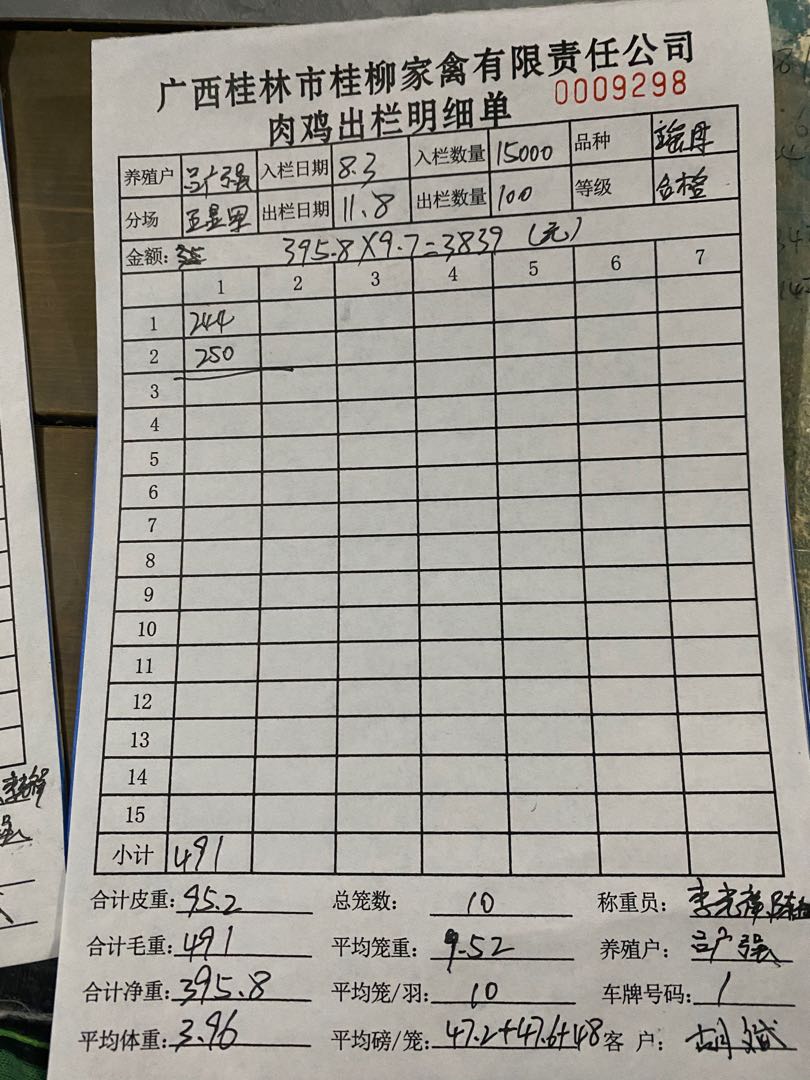 广西桂林市桂柳家禽有限责任公司
肉鸡出栏明细单 0009298
养殖户 吕广强 入栏日期 8.3 入栏数量 15000 品种
分场 出栏日期 11.8 出栏数量 100 等级 合检
金额: 395.8×9.7=3839 (元)
1 2 3 4 5 6 7
1 244
2 250
3
4
5
6
7
8
9
10
11
12
13
14
15
小计 491
合计皮重: 95.2 总笼数: 10 称重员:
合计毛重: 491 平均笼重: 9.52 养殖户: 吕广强
合计净重: 395.8 平均笼/羽: 10 车牌号码: 1
平均体重: 3.96 平均磅/笼: 47.2+47.6+48 客 户: 胡斌